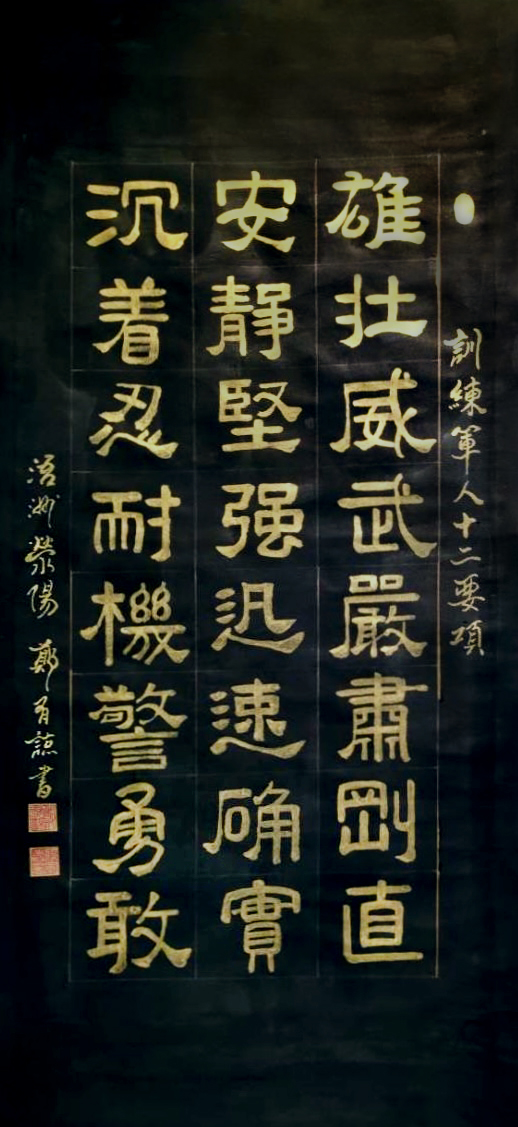 訓練軍人十二要項
雄壯威武嚴肅剛直
安靜堅强迅速确實
沉着忍耐機警勇敢
浯洲滎陽 鄭有諒書